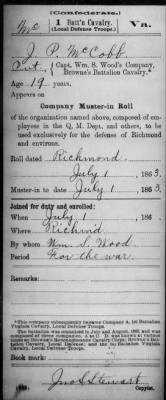 (Confederate.)
Mc 1 Batt'n Cavalry. Va.
(Local Defense Troops.)
J P McCobb
Pvt., Capt. Wm. S. Wood's Company,
Browne's Battalion Cavalry.*
Age 19 years.
Appears on
Company Muster-in Roll
of the organization named above, composed of em-
ployees in the Q. M. Dept. and others, to be
used exclusively for the defense of Richmond
and environs.
Roll dated Richmond.
July 1, 1863.
Muster-in to date July 1, 1863.
Joined for duty and enrolled:
When July 1, 186 .
Where Richmd
By whom Wm. S. Wood
Period For the war.
Remarks:
*This company subsequently became Company A, 1st Battalion
Virginia Cavalry, Local Defense Troops.
Book mark:
Jno S Stewart
Copyist.